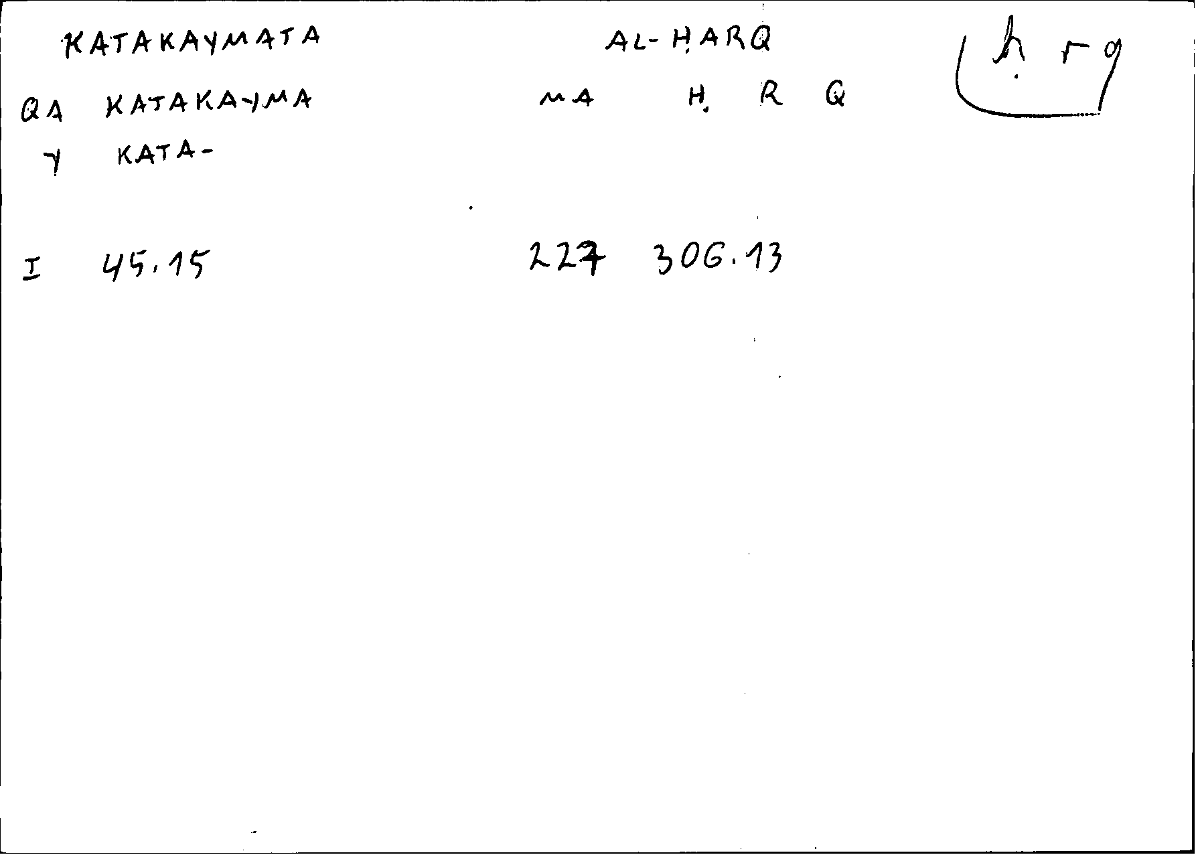 KATAKAYMATA AL-ḤARQ ḥ r q
QA KATAKAYMA MA Ḥ R Q
Y KATA-
I 45.15 227 306.13